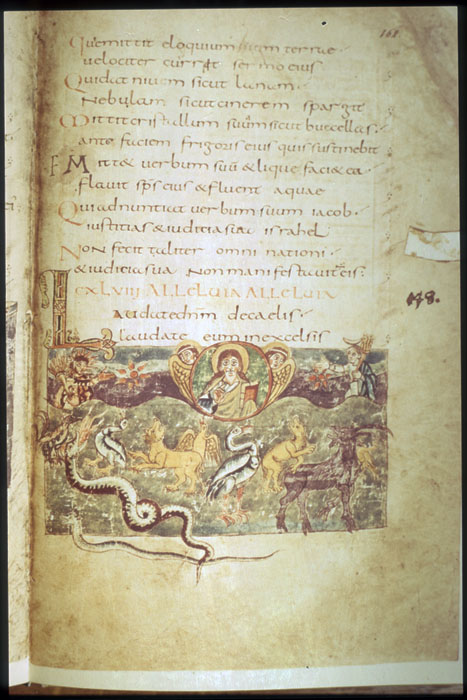 161
Qui emittit eloquium suum terrae·
velociter currit sermo eius
Qui dat nivem sicut lanam·
Nebulam sicut cinerem spargit
Mittit cristallum suum sicut buccellas·
ante faciem frigoris eius quis sustinebit
EMitt& verbum suū & liquefaci& ea·
flavit sp̄s eius & fluent aquae
Qui adnuntiat verbum suum iacob·
iustitias & iudicia sua israhel
NoN fecit taliter omni nationi·
& iudicia sua Non manifestavit eis:
CXLVIII ALLELUIA ALLELUIA
148.
Laudate dn̄m de caelis·
laudate eum in excelsis